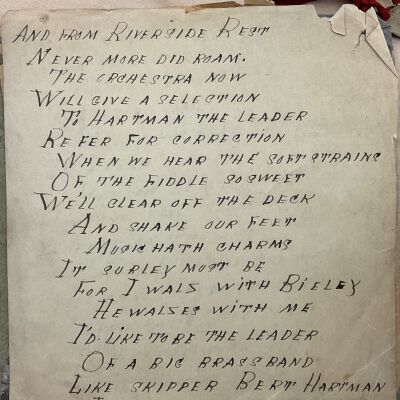 AND FROM RIVERSIDE REST
NEVER MORE DID ROAM.
THE ORCHESTRA NOW
WILL GIVE A SELECTION
TO HARTMAN THE LEADER
REFER FOR CORRECTION
WHEN WE HEAR THE SOFT STRAINS
OF THE FIDDLE SO SWEET
WE'LL CLEAR OFF THE DECK
AND SHAKE OUR FEET
MUSIC HATH CHARMS
IT SURLEY MUST BE
FOR I WALS WITH BIELEY
HE WALSES WITH ME
I'D LIKE TO BE THE LEADER
OF A BIG BRASS BAND
LIKE SKIPPER BERT HARTMAN